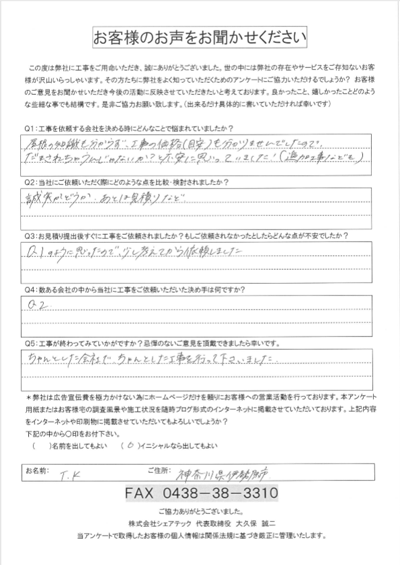 お客様のお声をお聞かせください
この度は弊社に工事をご用命いただき、誠にありがとうございました。世の中には弊社の存在やサービスをご存知ないお客
様が沢山いらっしゃいます。その方たちに弊社をよく知っていただくためのアンケートにご協力いただけるでしょうか? お客様
のご意見をお聞かせいただき今後の活動に反映させていきたいと考えております。良かったこと、嬉しかったことどのよう
な些細な事でも結構です。是非ご協力お願い致します。(出来るだけ具体的に書いていただければ幸いです)
Q1:工事を依頼する会社を決める時にどんなことで悩まれていましたか?
屋根の知識も分からず、工事の価格(目安)も分かりませんでしたので、
だまされちゃうんじゃないか?と不安に思っていました!(追加工事なども)
Q2:当社にご依頼いただく際にどのような点を比較・検討されましたか?
誠実かどうか、あとは見積りなど
Q3:お見積り提出後すぐに工事をご依頼されましたか?もしご依頼されなかったとしたらどんな点が不安でしたか?
Q.1のように思ったので、少し考えてから依頼しました
Q4:数ある会社の中から当社に工事をご依頼いただいた決め手は何ですか?
Q.2
Q5:工事が終わってみていかがですか?忌憚のないご意見を頂戴できましたら幸いです。
ちゃんとした会社で、ちゃんとした工事を行って下さいました。
*弊社は広告宣伝費を極力かけない為にホームページだけを頼りにお客様への営業活動を行っております。本アンケート
用紙またはお客様宅の調査風景や施工状況を随時ブログ形式のインターネットに掲載させていただいております。上記内容
をインターネットや印刷物に掲載させていただいてもよろしいでしょうか?
下記の中から〇印をお付下さい。
( )名前を出してもよい (○)イニシャルなら出してもよい
お名前: T.K ご住所: 神奈川県伊勢原市
FAX 0438-38-3310
ご協力ありがとうございました。
株式会社シェアテック 代表取締役 大久保 誠二
当アンケートで取得したお客様の個人情報は関係法規に基づき厳正に管理いたします。